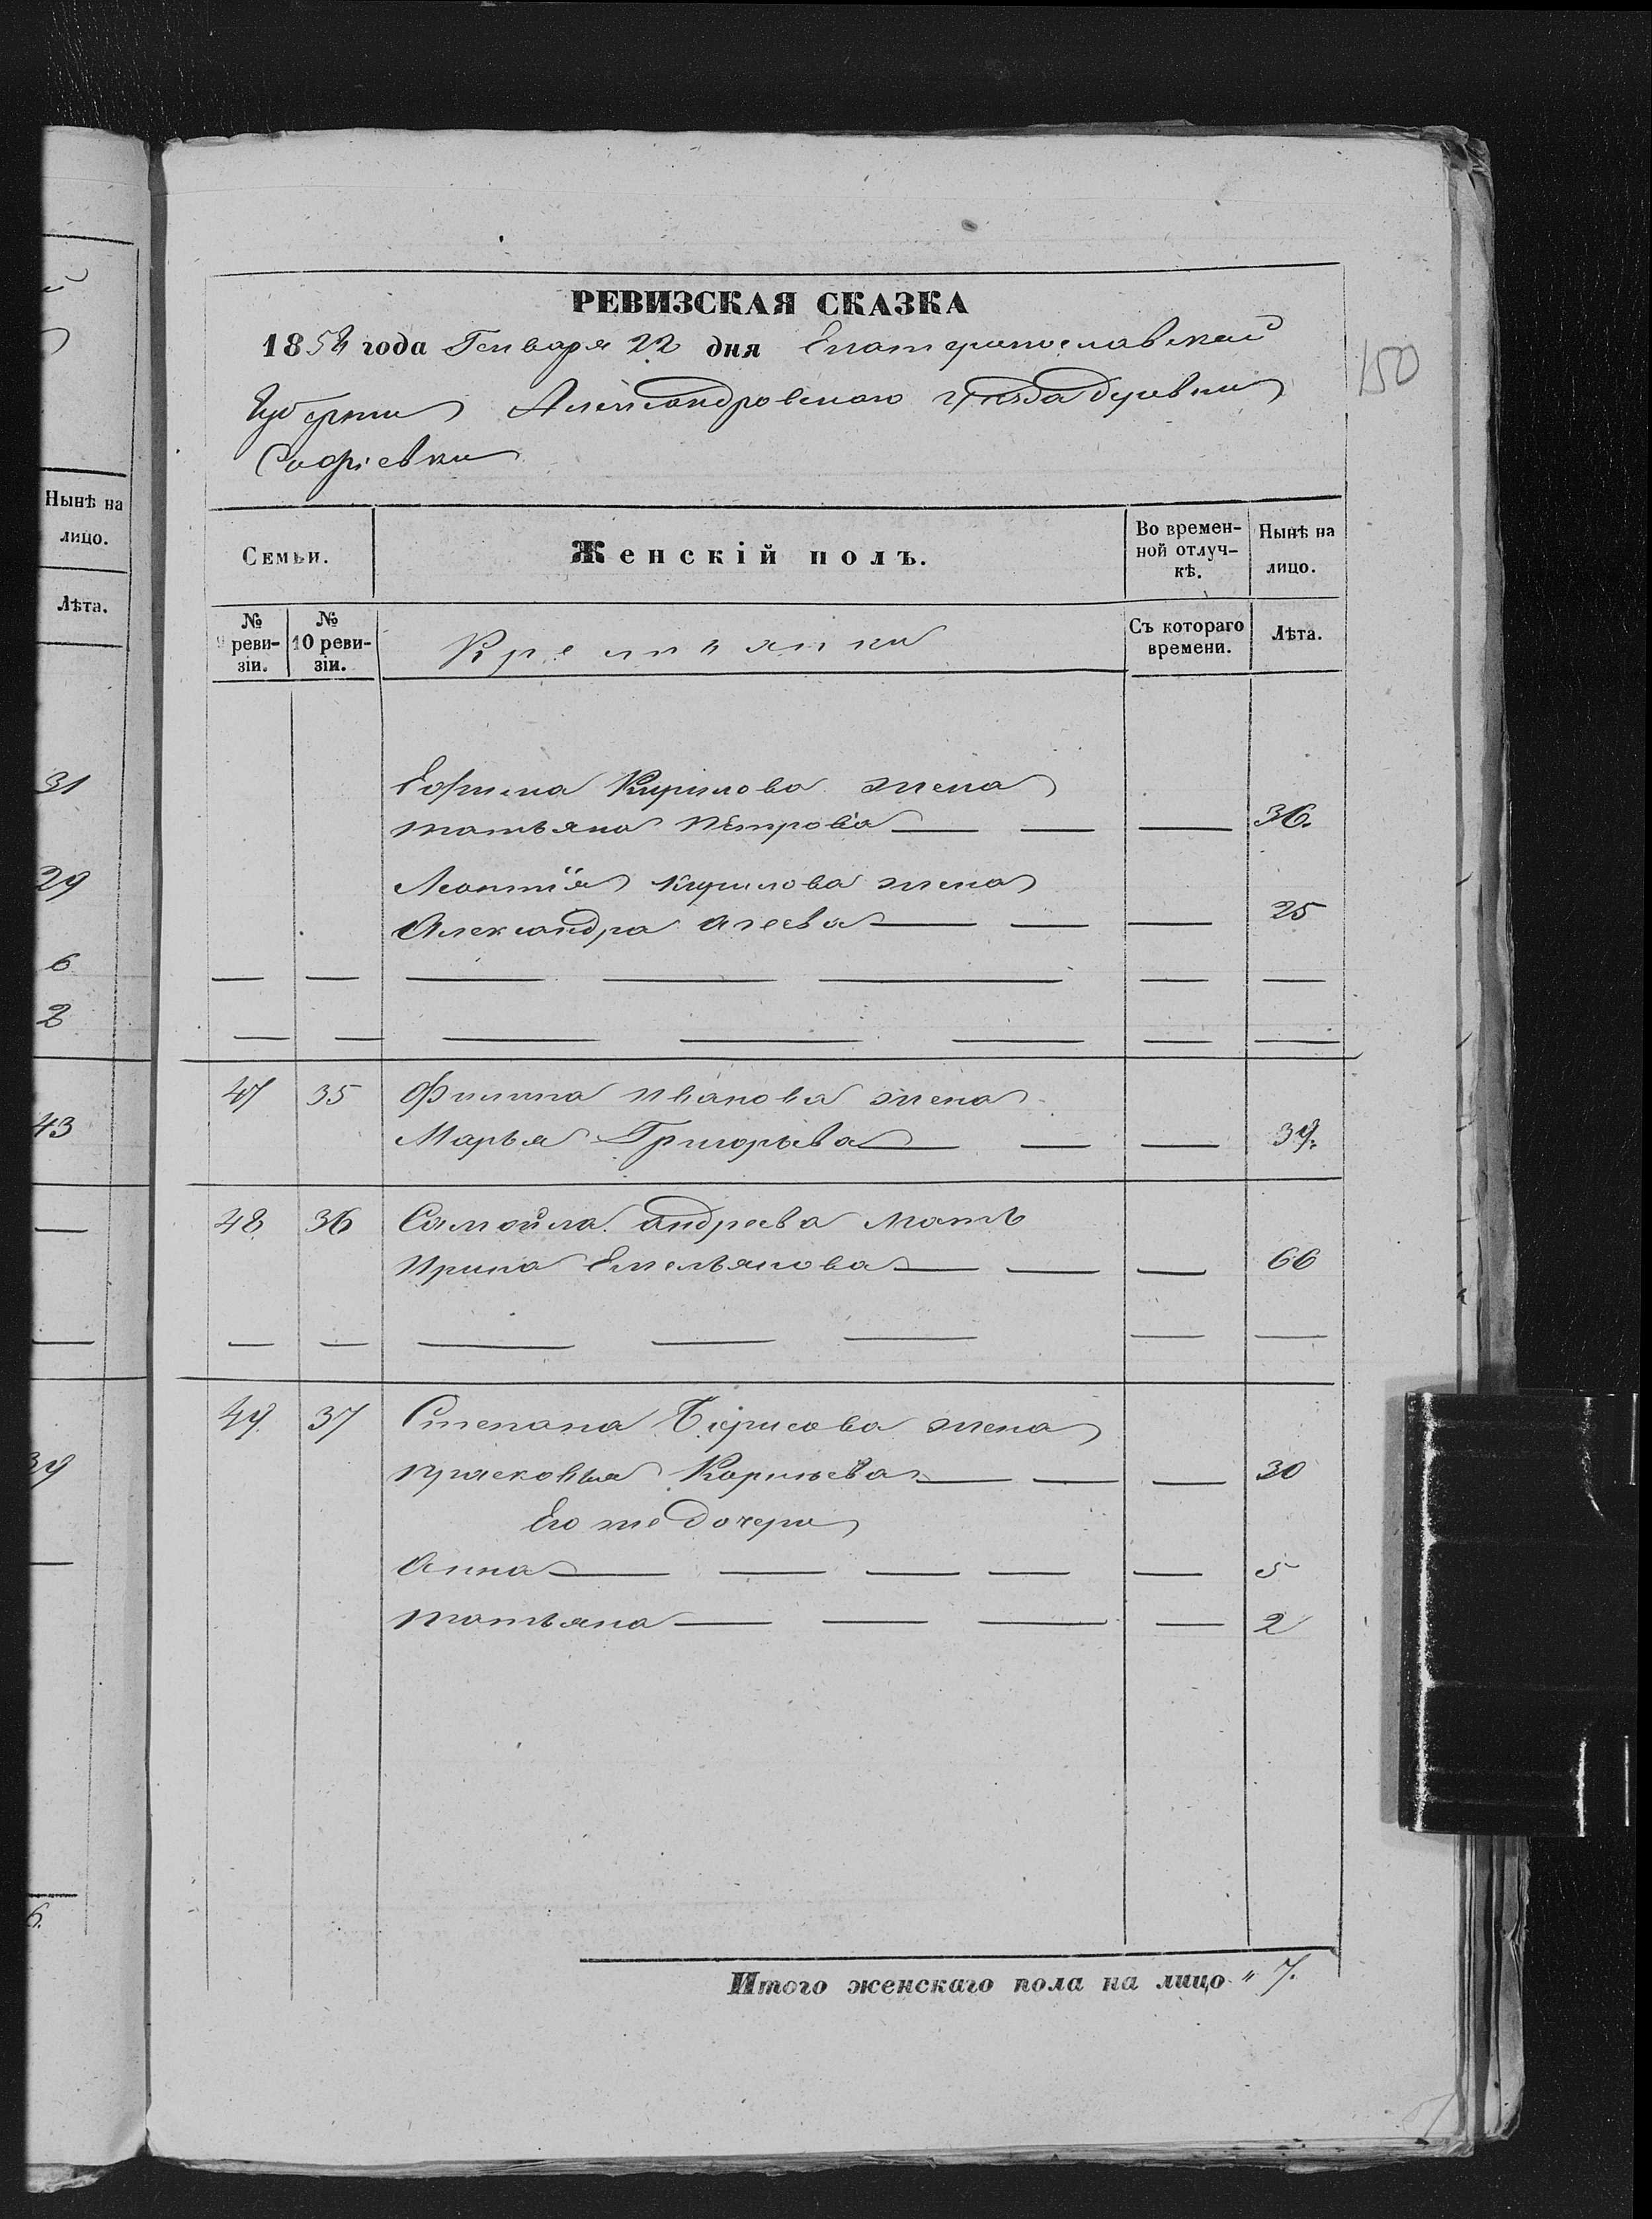 Нынѣ на
лицо.
Лѣта.
31
29
6
2
43
39
6.
150
РЕВИЗСКАЯ СКАЗКА
1858 года Генваря 22 дня Екатеринославской
Губернии Александровского уѣзда деревни
Софіевки
Семьи. Женскій полъ. Во времен-ной отлуч-кѣ. Нынѣ на лицо.
№ 9 реви-зіи. № 10 реви-зіи. Крестьянки Съ котораго времени. Лѣта.
Ефима Кирилова жена
татьяна Петрова — — — 36.
Леонтія Кирилова жена
Александра — — — 25
47 35 Филипа Иванова жена
Марья Григорьева — — — 39.
48 36 Самойла андреева мать
Ирина Емельянова — — — 66
49 37 Степана Борисова жена
прасковья Корнѣева — — — 30
Его же дочери
Анна — — — — — 5
татьяна — — — — 2
Итого женскаго пола на лицо " 7.